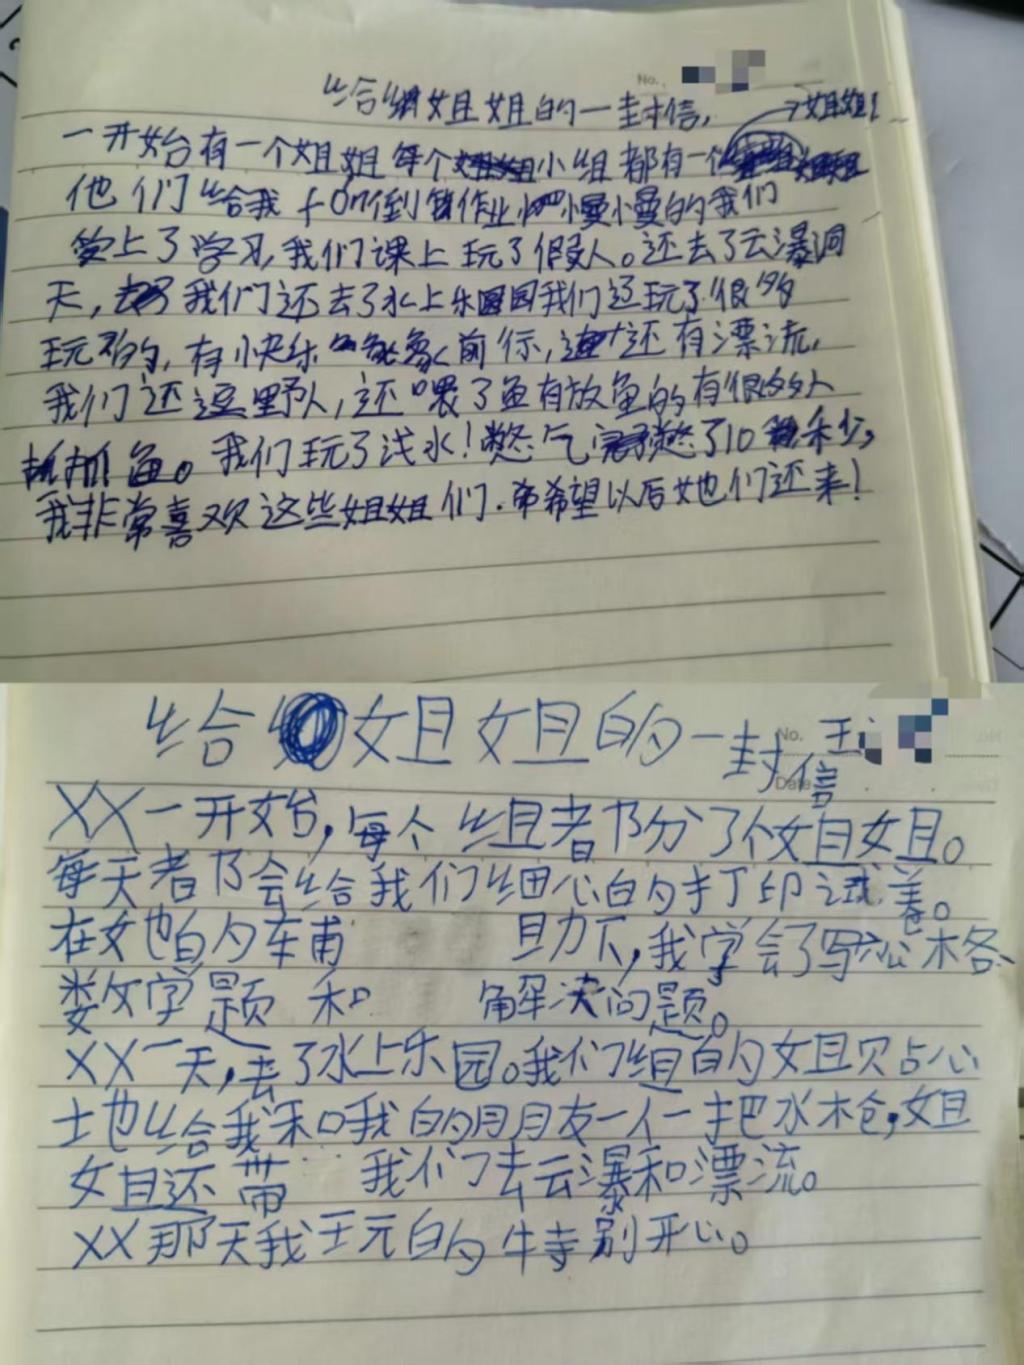 No.
给姐姐的一封信,
→姐姐!
一开始有一个姐姐每个小组都有一个
他们给我们作业慢慢的我们
爱上了学习,我们课上玩了假人。还去了云瀑洞
天,我们还去了水上乐园我们还玩了很多
玩的,有小快乐 前行,还有漂流,
我们还逗野人,还喂了鱼有放鱼的有很多人
抓鱼。我们玩了浅水!憋气憋了10秒,
我非常喜欢这些姐姐们.希望以后她们还来!
给姐姐的一封信
No.
王
Date
XX一开始,每个组都分了个姐姐。
每天都会给我们细心的打印试卷。
在她的辅助下,我学会了写松格
数学题和解决问题。
XX一天,去了水上乐园。我们组的姐贴心
地给我和我的朋友一人一把水枪,姐
姐还带我们去云瀑和漂流。
XX那天我玩的特别开心。